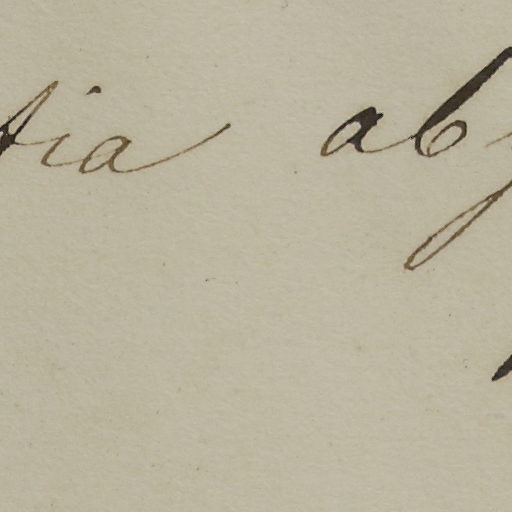 tia ab